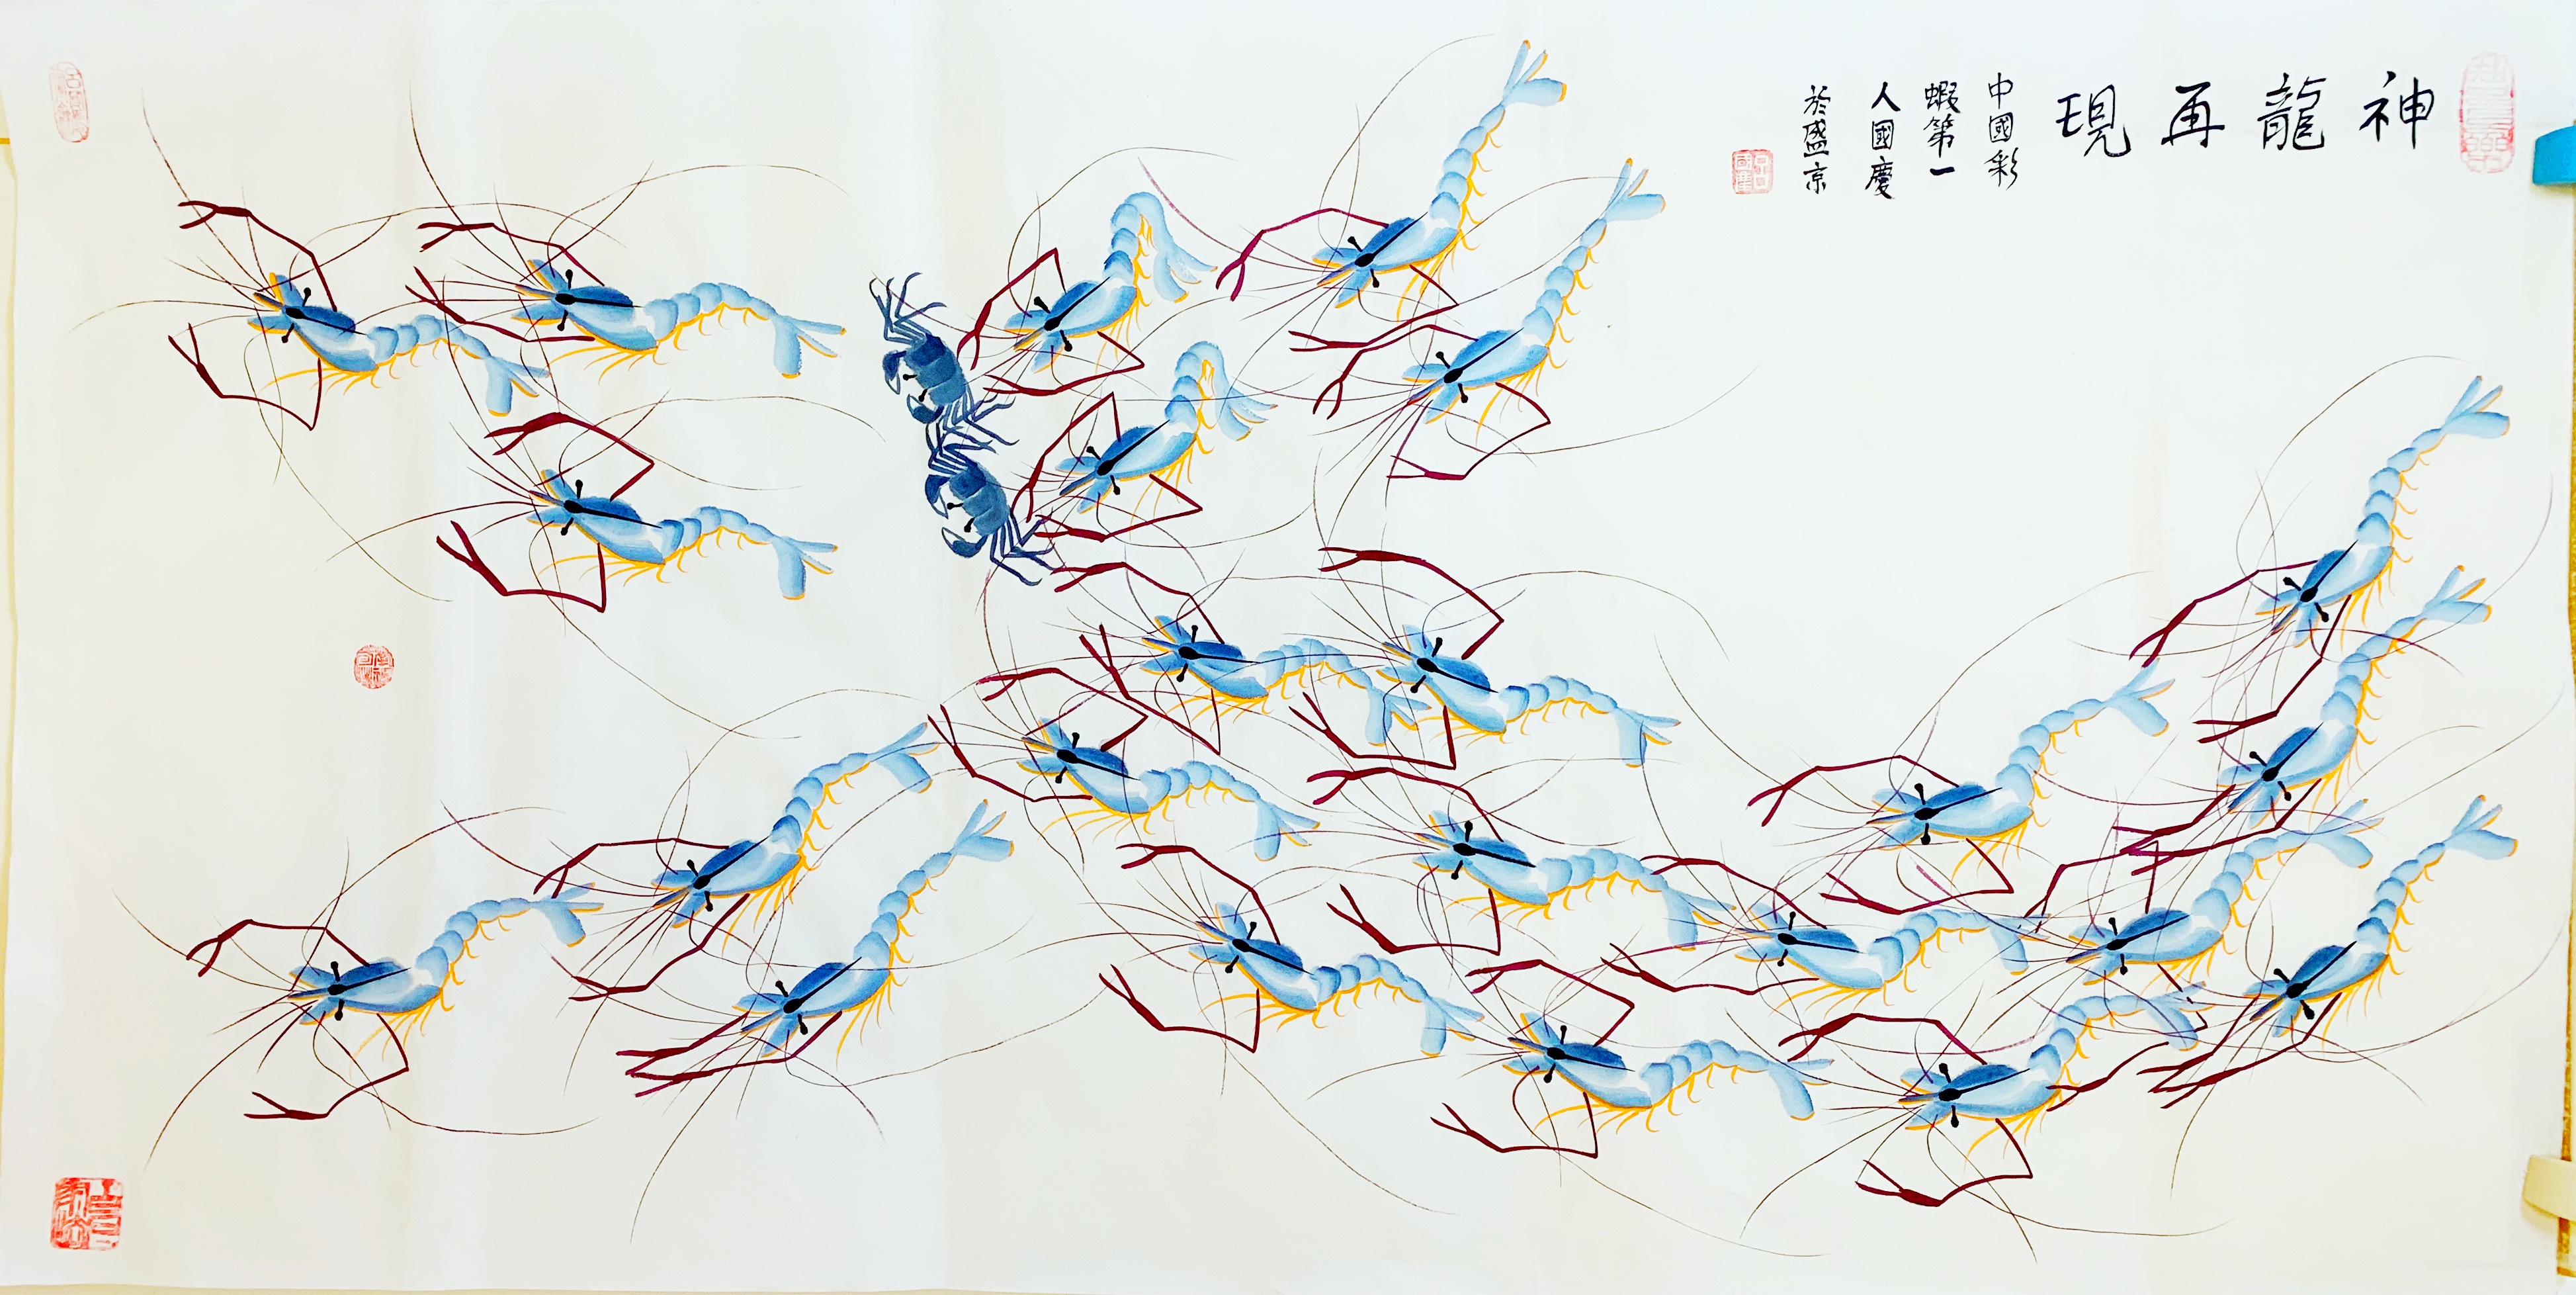 神龍再現
中國彩
蝦第一
人國慶
於盛京